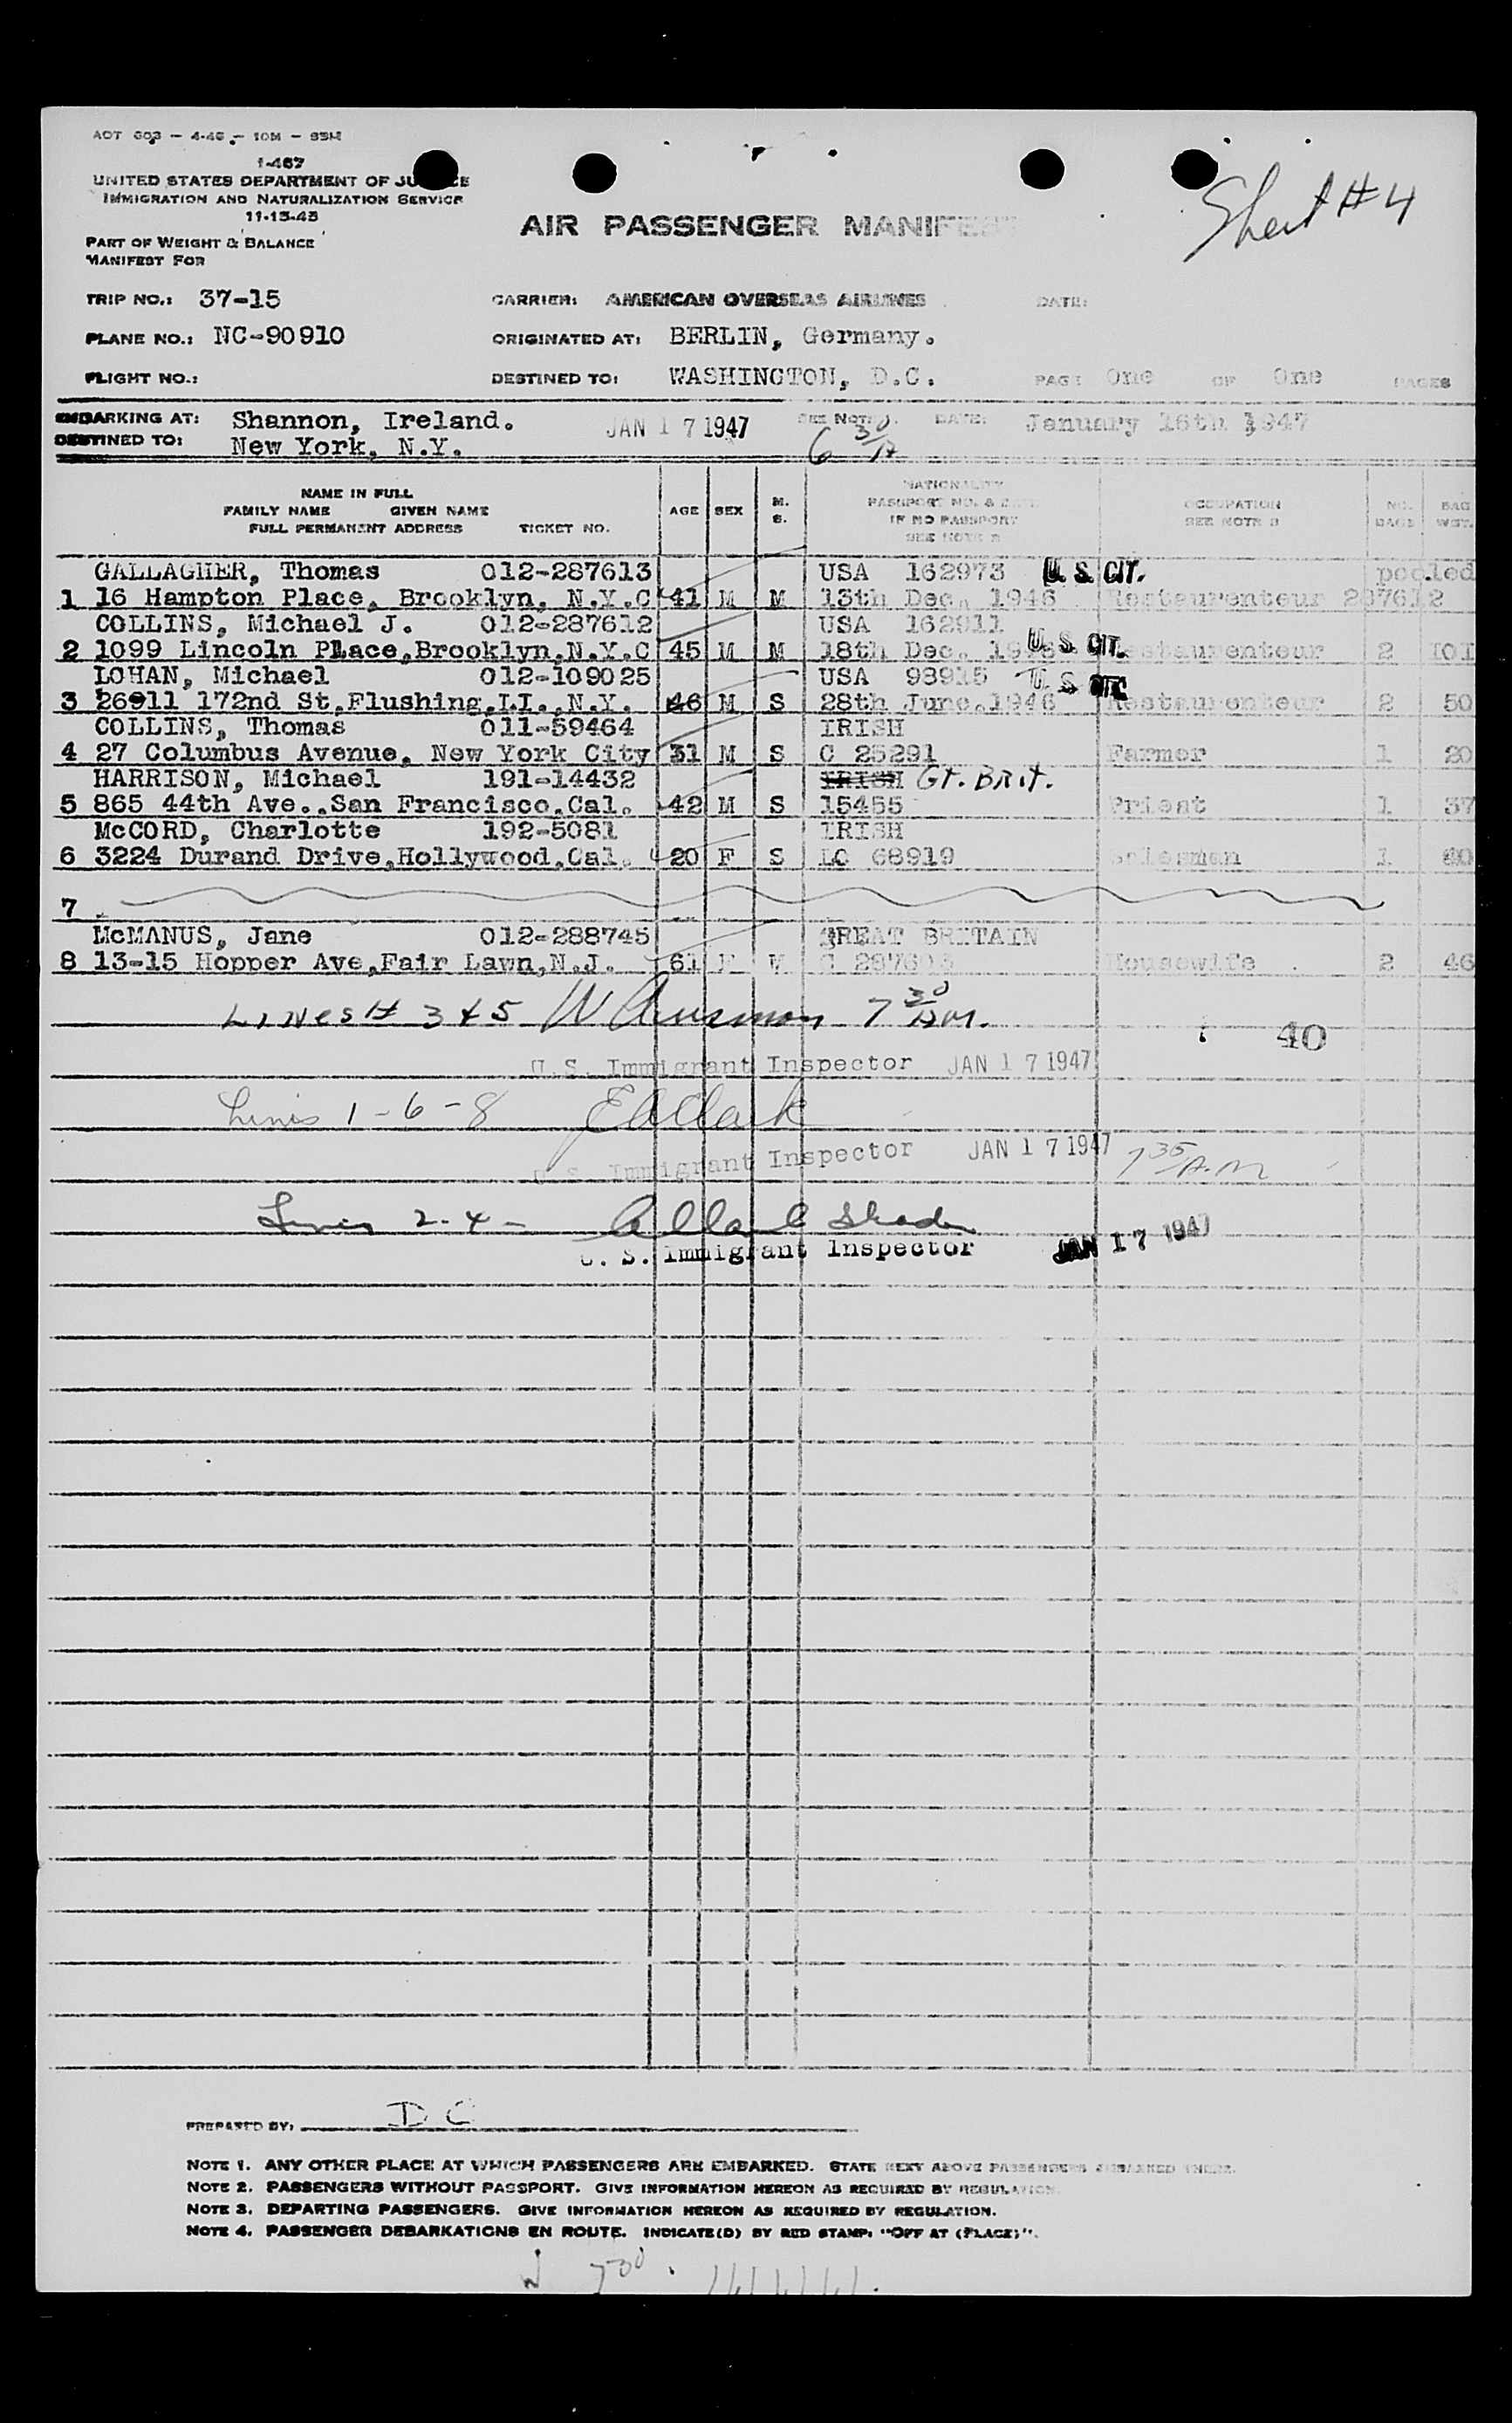 AOT 603 - 4-46 - 10M - SSM
1-467
UNITED STATES DEPARTMENT OF
IMMIGRATION AND NATURALIZATION SERVICE
11-15-45
PART OF WEIGHT & BALANCE
MANIFEST FOR
AIR PASSENGER MANIFEST
Sheet #4
TRIP NO.: 37-15 CARRIER: AMERICAN OVERSEAS AIRLINES DATE:
PLANE NO.: NC-90910 ORIGINATED AT: BERLIN, Germany.
FLIGHT NO.: DESTINED TO: WASHINGTON, D.C. PAGE One OF One PAGES
EMBARKING AT: Shannon, Ireland. JAN 17 1947 SEE NOTE DATE: January 16th 1947
DESTINED TO: New York, N.Y. 6 30 A
NAME IN FULL
FAMILY NAME GIVEN NAME
FULL PERMANENT ADDRESS TICKET NO.
AGE SEX M. S.
NATIONALITY
PASSPORT NO. & DATE
IF NO PASSPORT
SEE NOTE 2
OCCUPATION
SEE NOTE 3
NO. BAGS BAG WGT.
GALLAGHER, Thomas 012-287613 USA 162973 U.S. CIT. pooled
1 16 Hampton Place, Brooklyn, N.Y.C 41 M M 13th Dec. 1946 Restaurenteur 287612
COLLINS, Michael J. 012-287612 USA 162911 U.S. CIT.
2 1099 Lincoln Place,Brooklyn,N.Y.C 45 M M 18th Dec. 1946 Restaurenteur 2 101
LOHAN, Michael 012-109025 USA 98915 U.S. CIT.
3 26911 172nd St,Flushing,LI.,N.Y. 46 M S 28th June,1946 Restaurenteur 2 50
COLLINS, Thomas 011-59464 IRISH
4 27 Columbus Avenue, New York City 31 M S C 25291 Farmer 1 20
HARRISON, Michael 191-14432 IRISH Gt. Brit.
5 865 44th Ave.,San Francisco,Cal. 42 M S 15455 Priest 1 37
McCORD, Charlotte 192-5081 IRISH
6 3224 Durand Drive,Hollywood,Cal. 20 F S LO 68919 Salesman 1 40
7
McMANUS, Jane 012-288745 GREAT BRITAIN
8 13-15 Hopper Ave,Fair Lawn,N.J. 61 F W C Housewife 2 46
Lines # 3 & 5 7 30 AM.
40
U.S. Immigrant Inspector JAN 17 1947
Lines 1-6-8 E A Clark
U.S. Immigrant Inspector JAN 17 1947 7 35 A.M
Lines 2-4-
U. S. Immigrant Inspector JAN 17 1947
PREPARED BY: D C
NOTE 1. ANY OTHER PLACE AT WHICH PASSENGERS ARE EMBARKED. STATE NEXT ABOVE PASSENGERS EMBARKED THERE.
NOTE 2. PASSENGERS WITHOUT PASSPORT. GIVE INFORMATION HEREON AS REQUIRED BY REGULATION.
NOTE 3. DEPARTING PASSENGERS. GIVE INFORMATION HEREON AS REQUIRED BY REGULATION.
NOTE 4. PASSENGER DEBARKATIONS EN ROUTE. INDICATE(D) BY RED STAMP. "OFF AT (PLACE)".
7 30